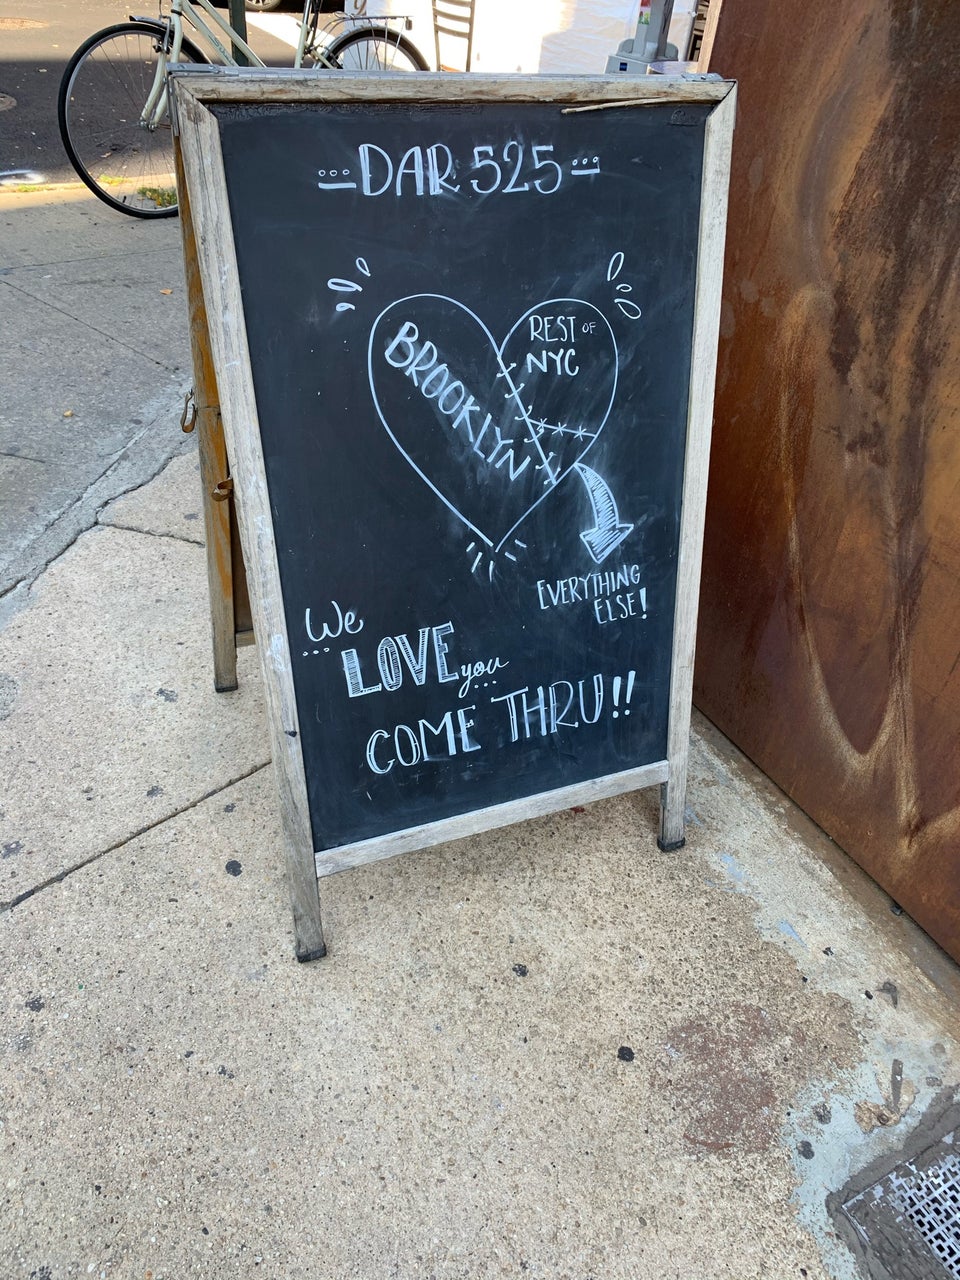 DAR 525
BROOKLYN
REST OF
NYC
EVERYTHING
ELSE!
We
LOVE you
COME THRU!!